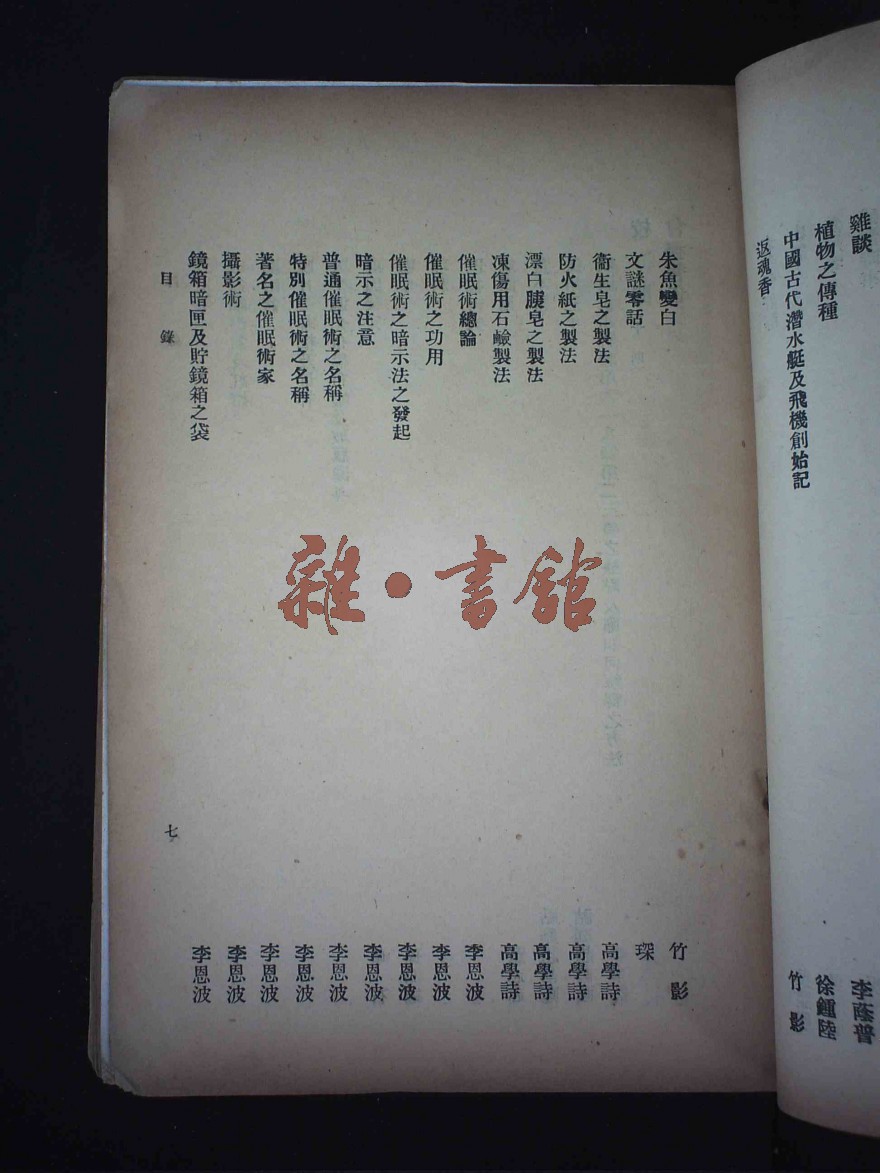 雞談 李蔭普
植物之傳種 徐鍾陸
中國古代潛水艇及飛機創始記 竹影
返魂香
朱魚變白 竹影
文謎零話 琛
衞生皂之製法 高學詩
防火紙之製法 高學詩
漂白胰皂之製法 高學詩
凍傷用石鹼製法 高學詩
催眠術總論 李恩波
催眠術之功用 李恩波
催眠術之暗示法之發起 李恩波
暗示之注意 李恩波
普通催眠術之名稱 李恩波
特別催眠術之名稱 李恩波
著名之催眠術家 李恩波
攝影術 李恩波
鏡箱暗匣及貯鏡箱之袋 李恩波
目錄 七
雜·書館